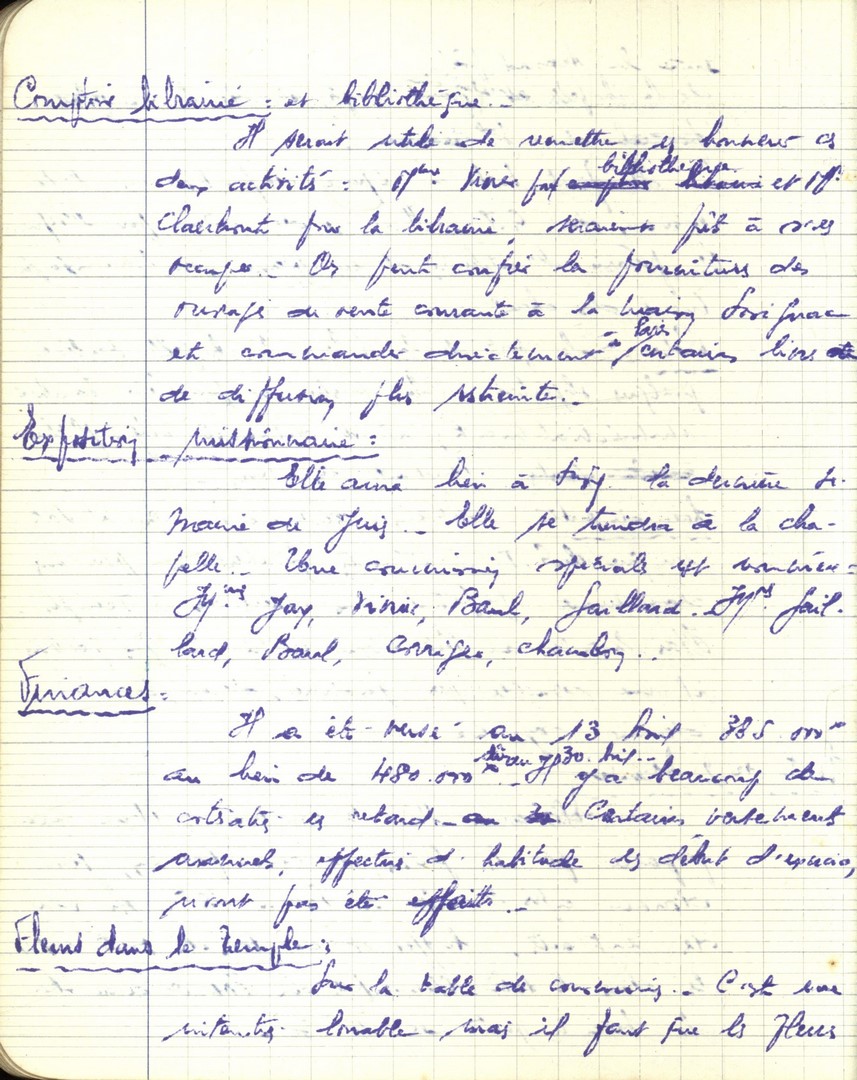 Comptoir librairie : et bibliothèque.-
Il serait utile de remettre en honneur ces
deux activités : Mme Vivier pour bibliothèque et M.
pour la librairie, seraient prêt à s'en
occuper.- On peut confier la fourniture des
ouvrages de vente courante à la
et commander directement certains livres
de diffusion plus restreinte.-
Exposition missionnaire :
Elle aura lieu à la dernière se-
maine de Juin.- Elle se tiendra à la cha-
pelle.- Une commission spéciale est nommée :
Mmes Jay, Vivier, Gaillard. Mrs Gail-
lard,
Finances :
Il a été versé au 13 Avril 385.000
au lieu de 480.000 Il y a beaucoup de
cotisations en retard.- Certains versements
annuels, effectués d'habitude en début d'exercice,
n'ont pas été faits.-
Fleurs dans le Temple :
Sur la table de communion.- C'est une
intention louable mais il faut que les fleurs